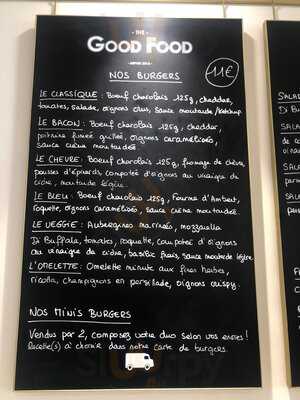 THE
GOOD FOOD
NOS BURGERS
11€
LE CLASSIQUE : Boeuf charolais 125g, cheddar,
tomates, salade, oignons crus, sauce moutarde/ketchup
LE BACON : Boeuf charolais 125g, cheddar,
poitrine fumée grillée, oignons caramélisés,
sauce crème moutardée
LE CHEVRE : Boeuf charolais 125g, fromage de chèvre,
pousses d'épinards, compotée d'oignons au vinaigre de
cidre, moutarde légère.
LE BLEU : Boeuf charolais 125g, Fourme d'Ambert,
roquette, oignons caramélisés, sauce crème moutardée.
LE VEGGIE : Aubergines marinées, mozzarella
Di Buffala, tomates, roquette, compotée d'oignons
au vinaigre de cidre, basilic frais, sauce moutarde légère.
L'OMELETTE : Omelette minute aux fines herbes,
ricotta, champignons en persillade, oignons crispy.
NOS MINIS BURGERS
Vendus par 2, composez votre duo selon vos envies !
Recette(s) à choisir dans notre carte de burgers.
SALA
SALA